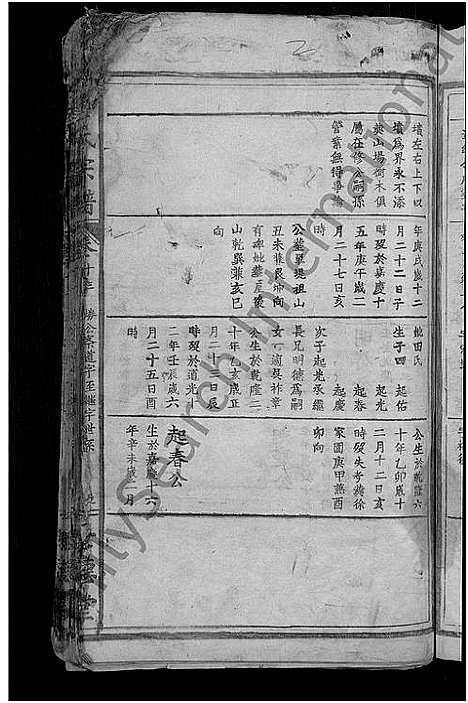 墳左右上下以
墳為界永不添
葬山場樹木俱
屬在修公嗣孫
管業無得爭論
年庚戌歲十二
月二十二日子
時歿於嘉慶十
五年庚午歲二
月二十七日亥
時
公墓畢堤祖山
丑未兼艮坤向
有碑妣葬屋後
山乾巽兼亥巳
向
妣田氏
生子四
起佑
起光
起春
起慶
次子起光承繼
長兄明德為嗣
女一適吳祚章
公生於乾隆二
十年乙亥歲正
月二十日辰
時歿於道光十
二年壬辰歲六
月二十五日酉
時
公生於乾隆六
十年乙卯歲十
二月十二日亥
時歿失考葬徐
家園庚甲兼酉
卯向
起春公
生於嘉慶十六
年辛未歲二月
氏宗譜
卷
公系道字至繼字世系
堂
MySearch International